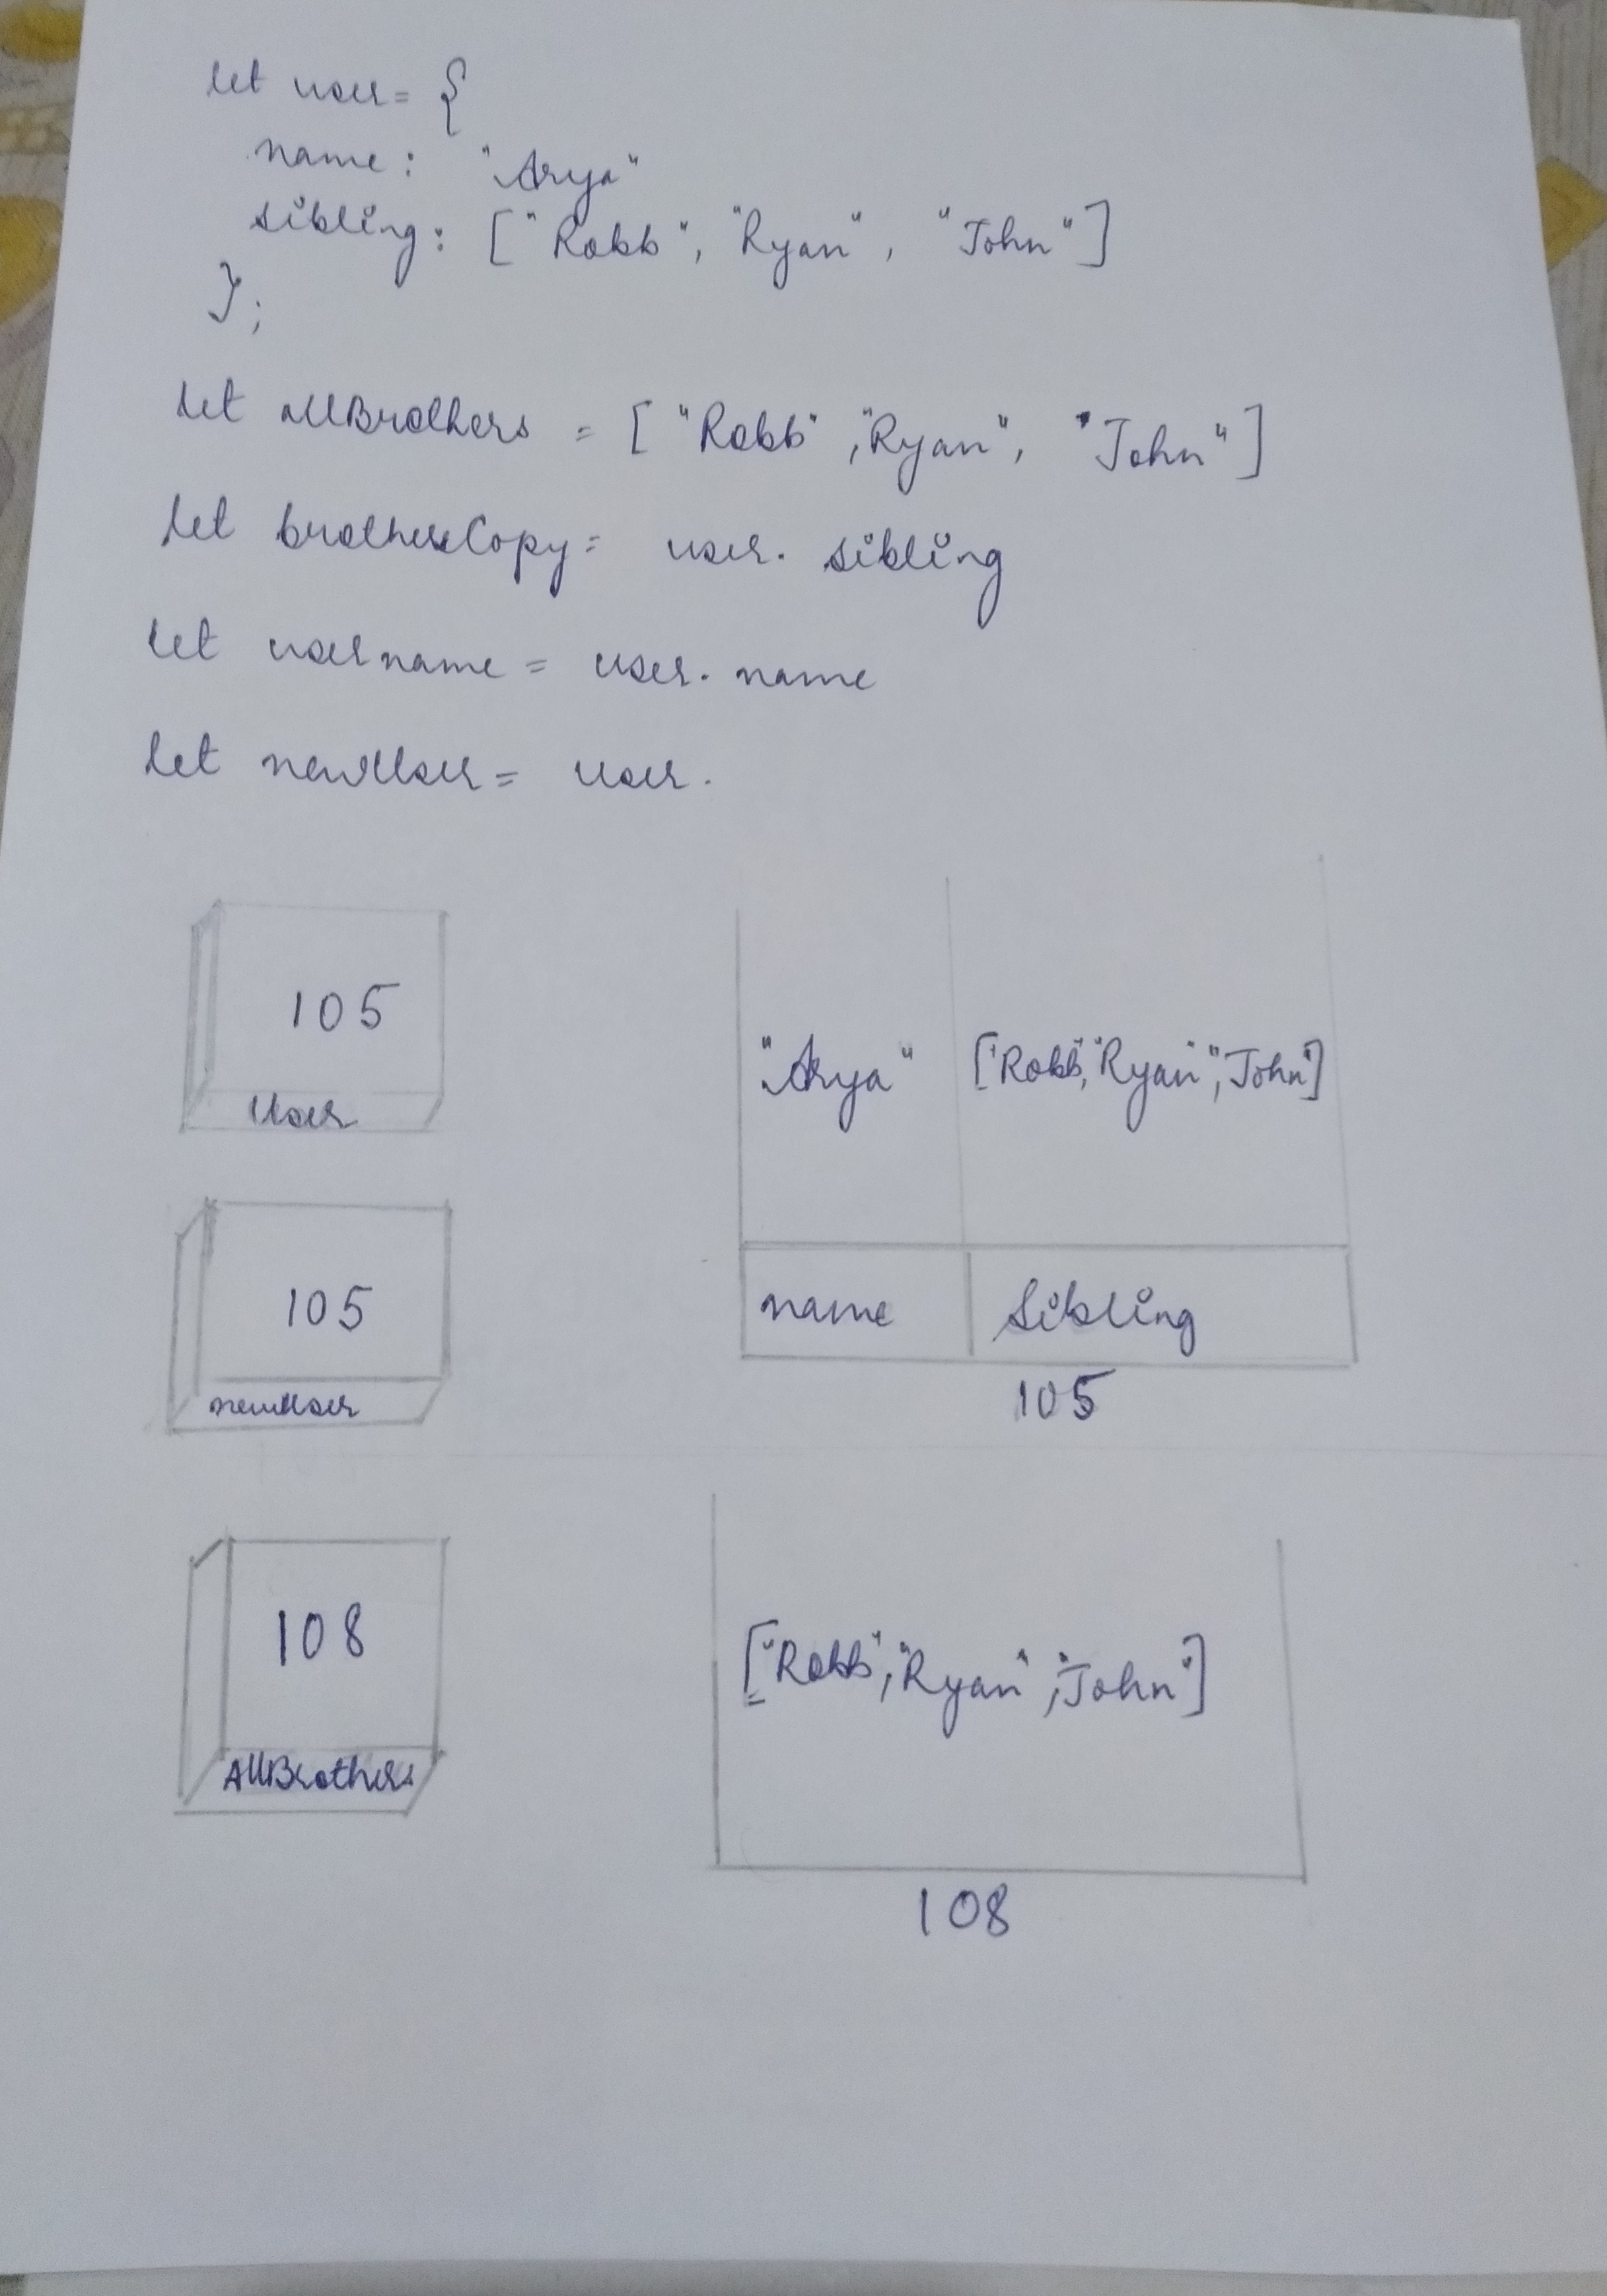 let user = {
name: "Arya"
sibling: ["Robb", "Ryan", "John"]
};
let allBrothers = ["Robb", "Ryan", "John"]
let brothersCopy = user. sibling
let username = user. name
let newUser = user.
105
User
"Arya" ["Robb", "Ryan", "John"]
105
newUser
name sibling
105
108
AllBrothers
["Robb", "Ryan", "John"]
108